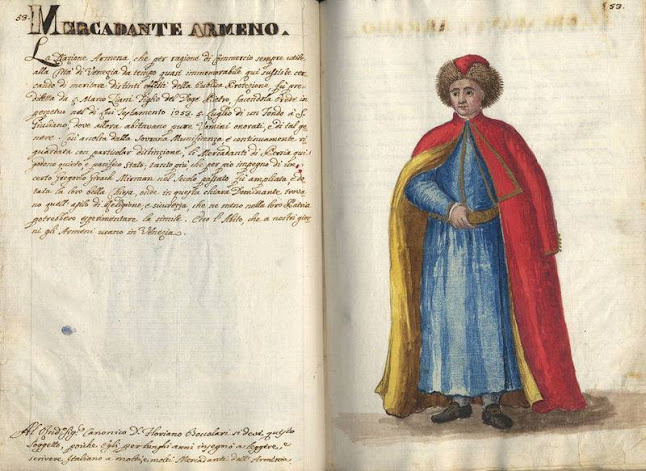 53.
MERCADANTE ARMENO.
La Nazione Armena che per ragione di Commercio sempre utile
alla Città di Venezia da tempo quasi immemorabile qui sussiste cer-
cando di meritare distinti effetti della Publica Protezione fù pre-
diletta da Marco Ziani Figlio del Doge Pietro, facendola erede in
perpetuo nel di lui Testamento 1253. 9. Luglio di un Fondo à S.
Giuliano, dove allora abitavano quasi Uomini onorati, e di tal ge-
nere. fù accolta dalla Sovrana Munificenza e continuamente ri-
guardata con particolar distinzione, li Mercadanti di Persia qui
godono quieto e pacifico Stato, tanto più che per pio impegno di un
certo Gregorio Mirman nel Secolo passato fù ampliata e do-
tata in loro bella Chiesa, onde in questa chiara Dominante trova-
no quell'asilo di Religione, e sicurezza che ne meno nella loro Patria
potrebbero esperimentare la simile. Ecco l'Abito, che a nostri gior-
ni gli Armeni usano in Venezia.
Al Sig. Canonico D. Floriano Boccalari si deve questo
soggetto, poiche egli per lunghi anni insegnò a leggere, e
scrivere Italiano a molti, e molti Mercadanti dell'Armenia
53.